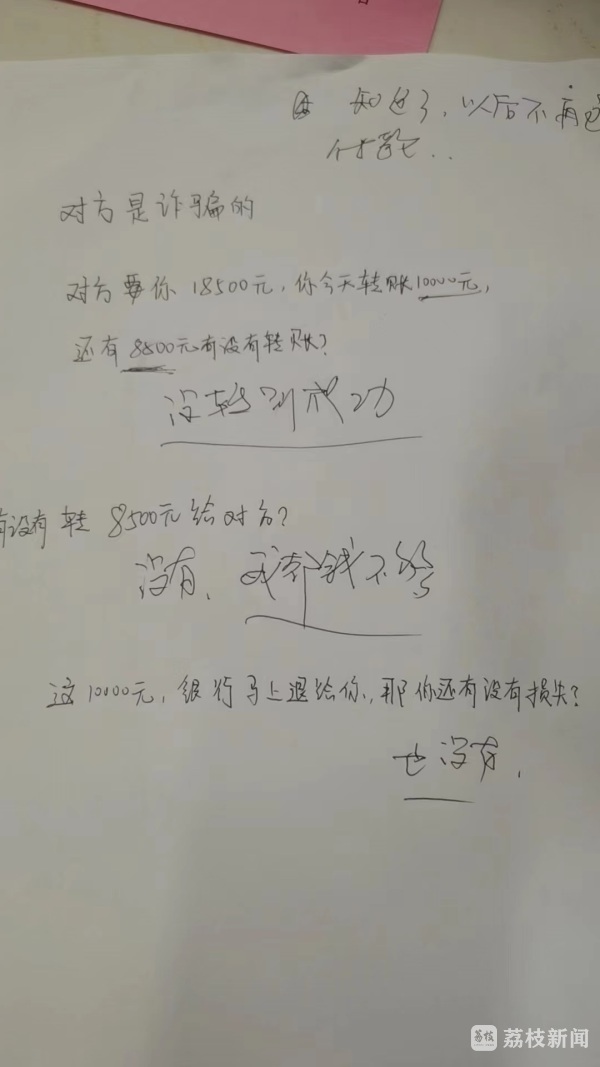 知道了，以后不再
对方是诈骗的
对方要你18500元，你今天转账10000元，
还有8500元有没有转账？
没转别成功
有没有转8500元给对方？
没有，我都钱不够
这10000元，银行马上退给你，那你还有没有损失？
也没有，
荔枝
荔枝新闻